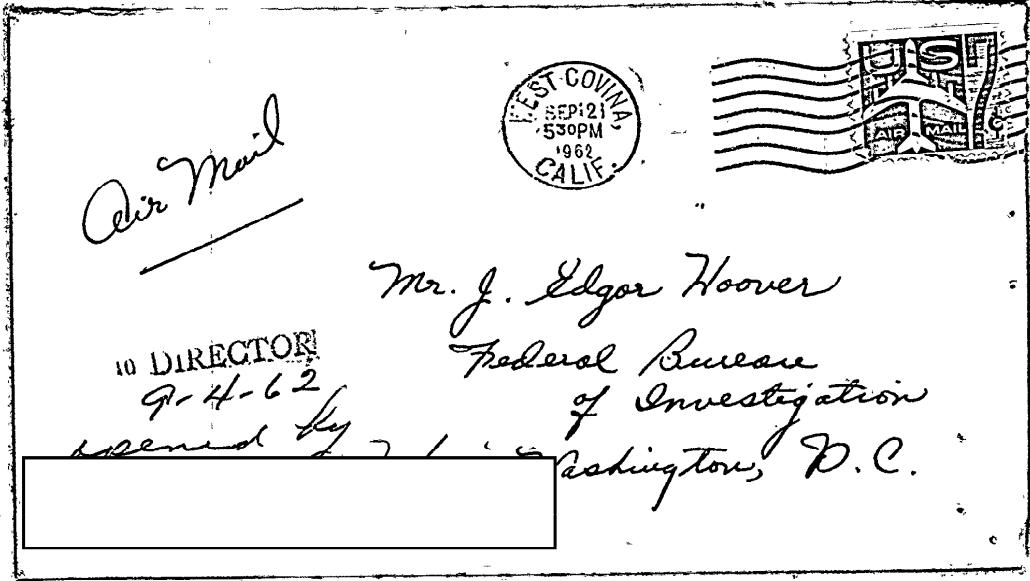 WEST COVINA,
SEP 21
530PM
1962
CALIF.
US 7c
AIR MAIL
Air Mail
Mr. J. Edgar Hoover
Federal Bureau
of Investigation
Washington, D.C.
TO DIRECTOR
9-4-62
opened by